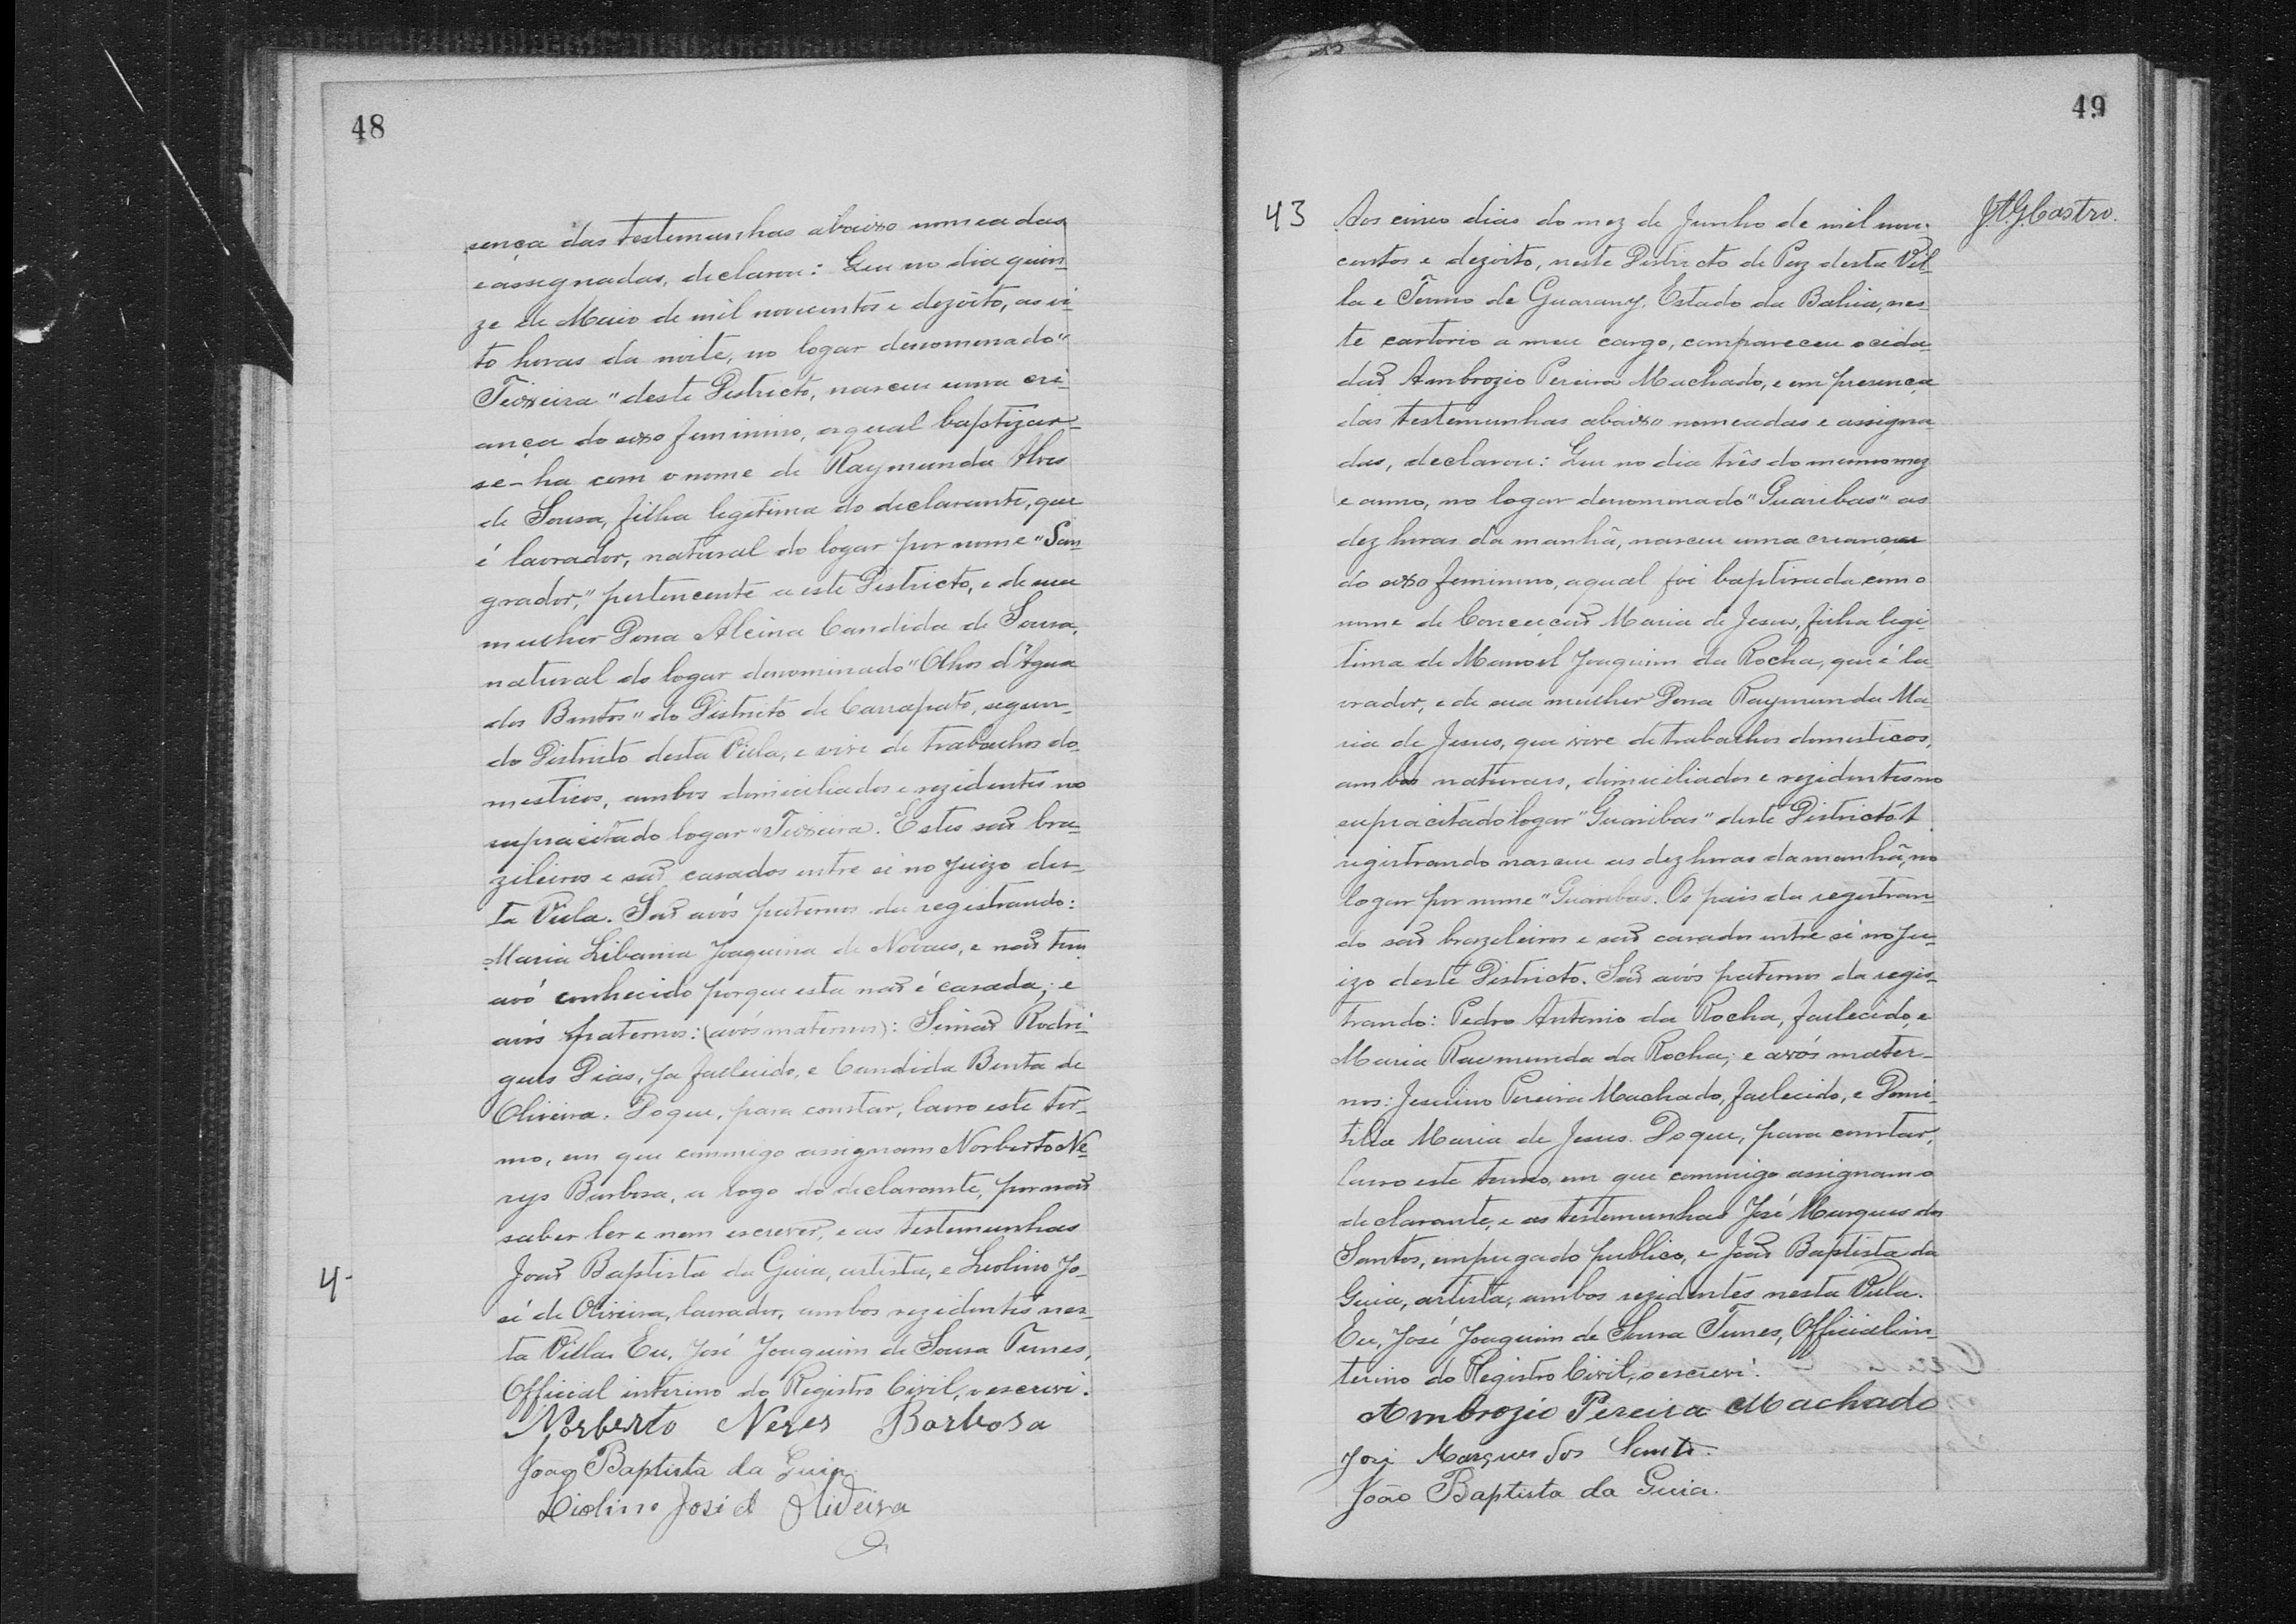 48
sença das testemunhas abaixo nomeadas
e assignadas, declarou: Que no dia quin-
ze de Maio de mil novecentos e dezoito, as oi-
to horas da noite, no logar denomenado "
Teixeira" deste Districto, nasceu uma cri-
ança do sexo feminino, a qual baptizar-
se-ha com o nome de Raymunda Alves
de Sousa, filha legitima do declarante, que
é lavrador, natural do logar por nome "San-
grador," pertencente a este Districto, e de sua
mulher Dona Alcina Candida de Sousa,
natural do logar denominado "Olhos d'Agua
dos Bentos" do Districto de Carrapato, segun-
do Districto desta Villa, e vive de trabalhos do-
mesticos, ambos domiciliados e rezidentes no
supracitado logar "Teixeira. Estes são bra-
zileiros e são casados entre si no Juizo des-
ta Villa. São avós paternos da registrando:
Maria Libania Joaquina de Novaes, e não tem
avô conhecido porque esta não é casada; e
avós paternos: (avós maternos): Simão Rodri-
gues Dias, ja fallecido, e Candida Benta de
Oliveira. Do que, para constar, lavro este ter-
mo, em que commigo assignam Norberto Ne-
rys Barbosa, a rogo do declarante, por não
saber ler e nem escrever, e as testemunhas
João Baptista da Guia, artista, e Liolino Jo-
4- sé de Oliveira, lavrador, ambos rezidentes nes-
ta Villa. Eu, José Joaquim de Sousa Tunes,
Official interino do Registro Civil, o escrevi.
Norberto Neres Barbosa
Joao Baptista da Guia
Liolino José d Oliveira
49
43 Aos cinco dias do mez de Junho de mil nove- J.A.G.Castro.
centos e dezoito, neste Districto de Paz desta Vil-
la e Termo de Guarany, Estado da Bahia, nes-
te cartorio a meu cargo, compareceu o cida-
dão Ambrozio Pereira Machado, e em presença
das testemunhas abaixo nomeadas e assigna-
das, declarou: Que no dia três do mesmo mez
e anno, no logar denominado "Guaribas" as
dez horas da manhã, nasceu uma creança
do sexo feminino, a qual foi baptisada com o
nome de Conceição Maria de Jesus, filha legi-
tima de Manoel Joaquim da Rocha, que é la-
vrador, e de sua mulher Dona Raymunda Ma-
ria de Jesus, que vive de trabalhos domesticos,
ambos naturaes, domiciliados e rezidentes no
supracitado logar "Guaribas" deste Districto. A
registrando nasceu as dez horas da manhã, no
logar por nome "Guaribas. Os pais da registran-
do são brazileiros e são casados entre si no Ju-
izo deste Districto. São avós paternos da regis-
trando: Pedro Antonio da Rocha, fallecido, e
Maria Raymunda da Rocha; e avós mater-
nos: Jesuino Pereira Machado, fallecido, e Domi-
tilia Maria de Jesus. Do que, para constar,
lavro este termo, em que commigo assignam o
declarante, e as testemunhas José Marques dos
Santos, empregado publico, e João Baptista da
Guia, artista, ambos rezidentes nesta Villa.
Eu, José Joaquim de Sousa Tunes, Official in-
terino do Registro Civil, o escrevi.
Ambrozio Pereira Machado
José Marques dos Santos.
João Baptista da Guia.